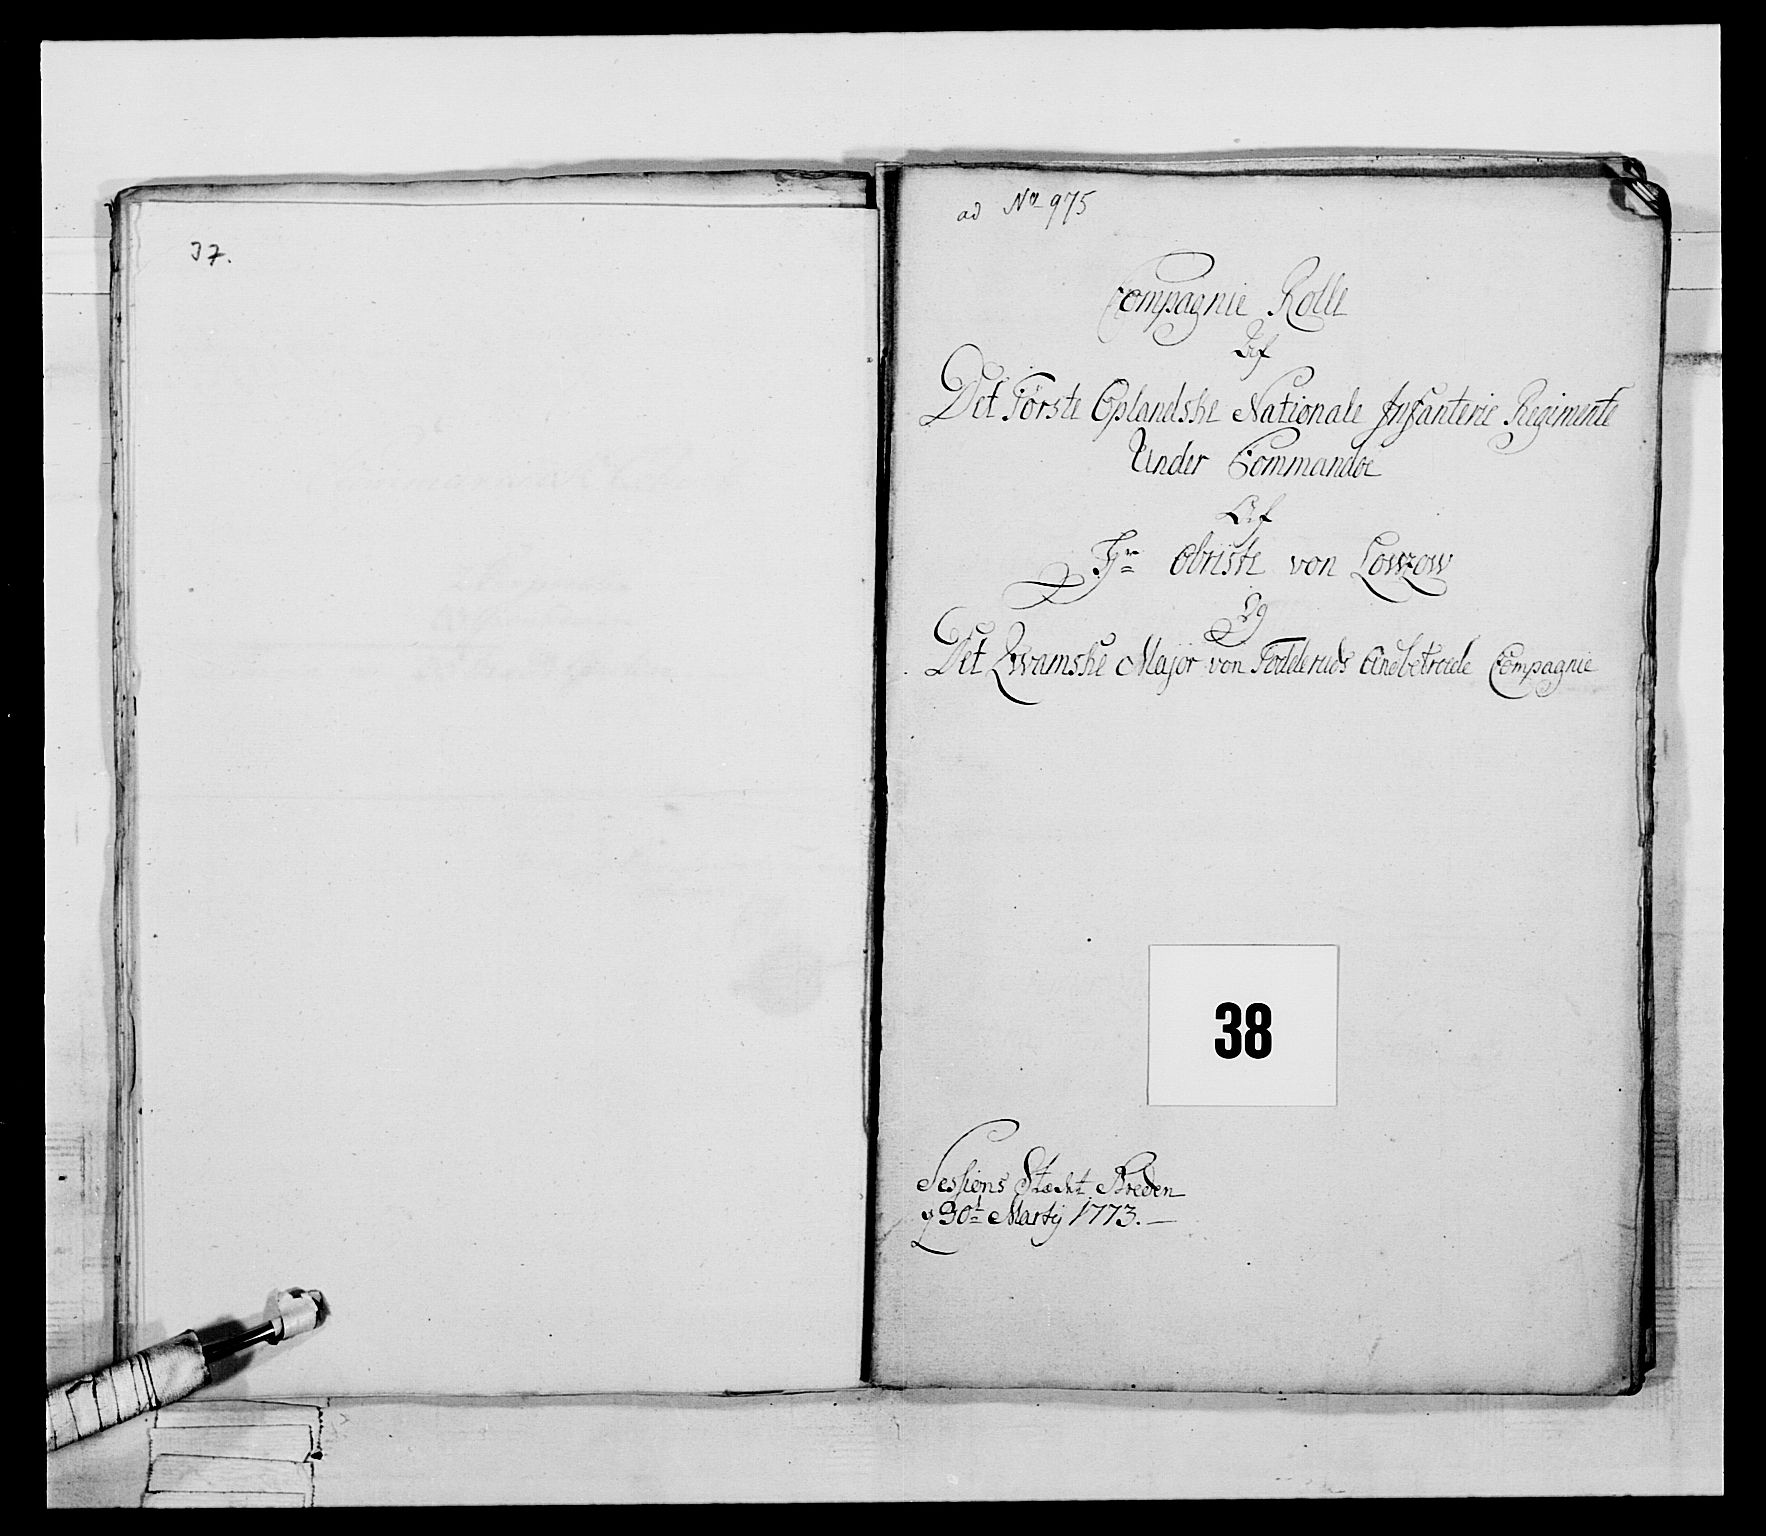 37.
ad No 975
Compagnie Rolle
Af
Det Første Oplandske Nationale Infanterie Regimente
Under Commandoe
Af
Hr Obriste von Lowzow
Og
Det Qvamske Major von Todderuds Anbetroede Compagnie
38
Sessions Stædet Breden
d 30t Martij 1773.